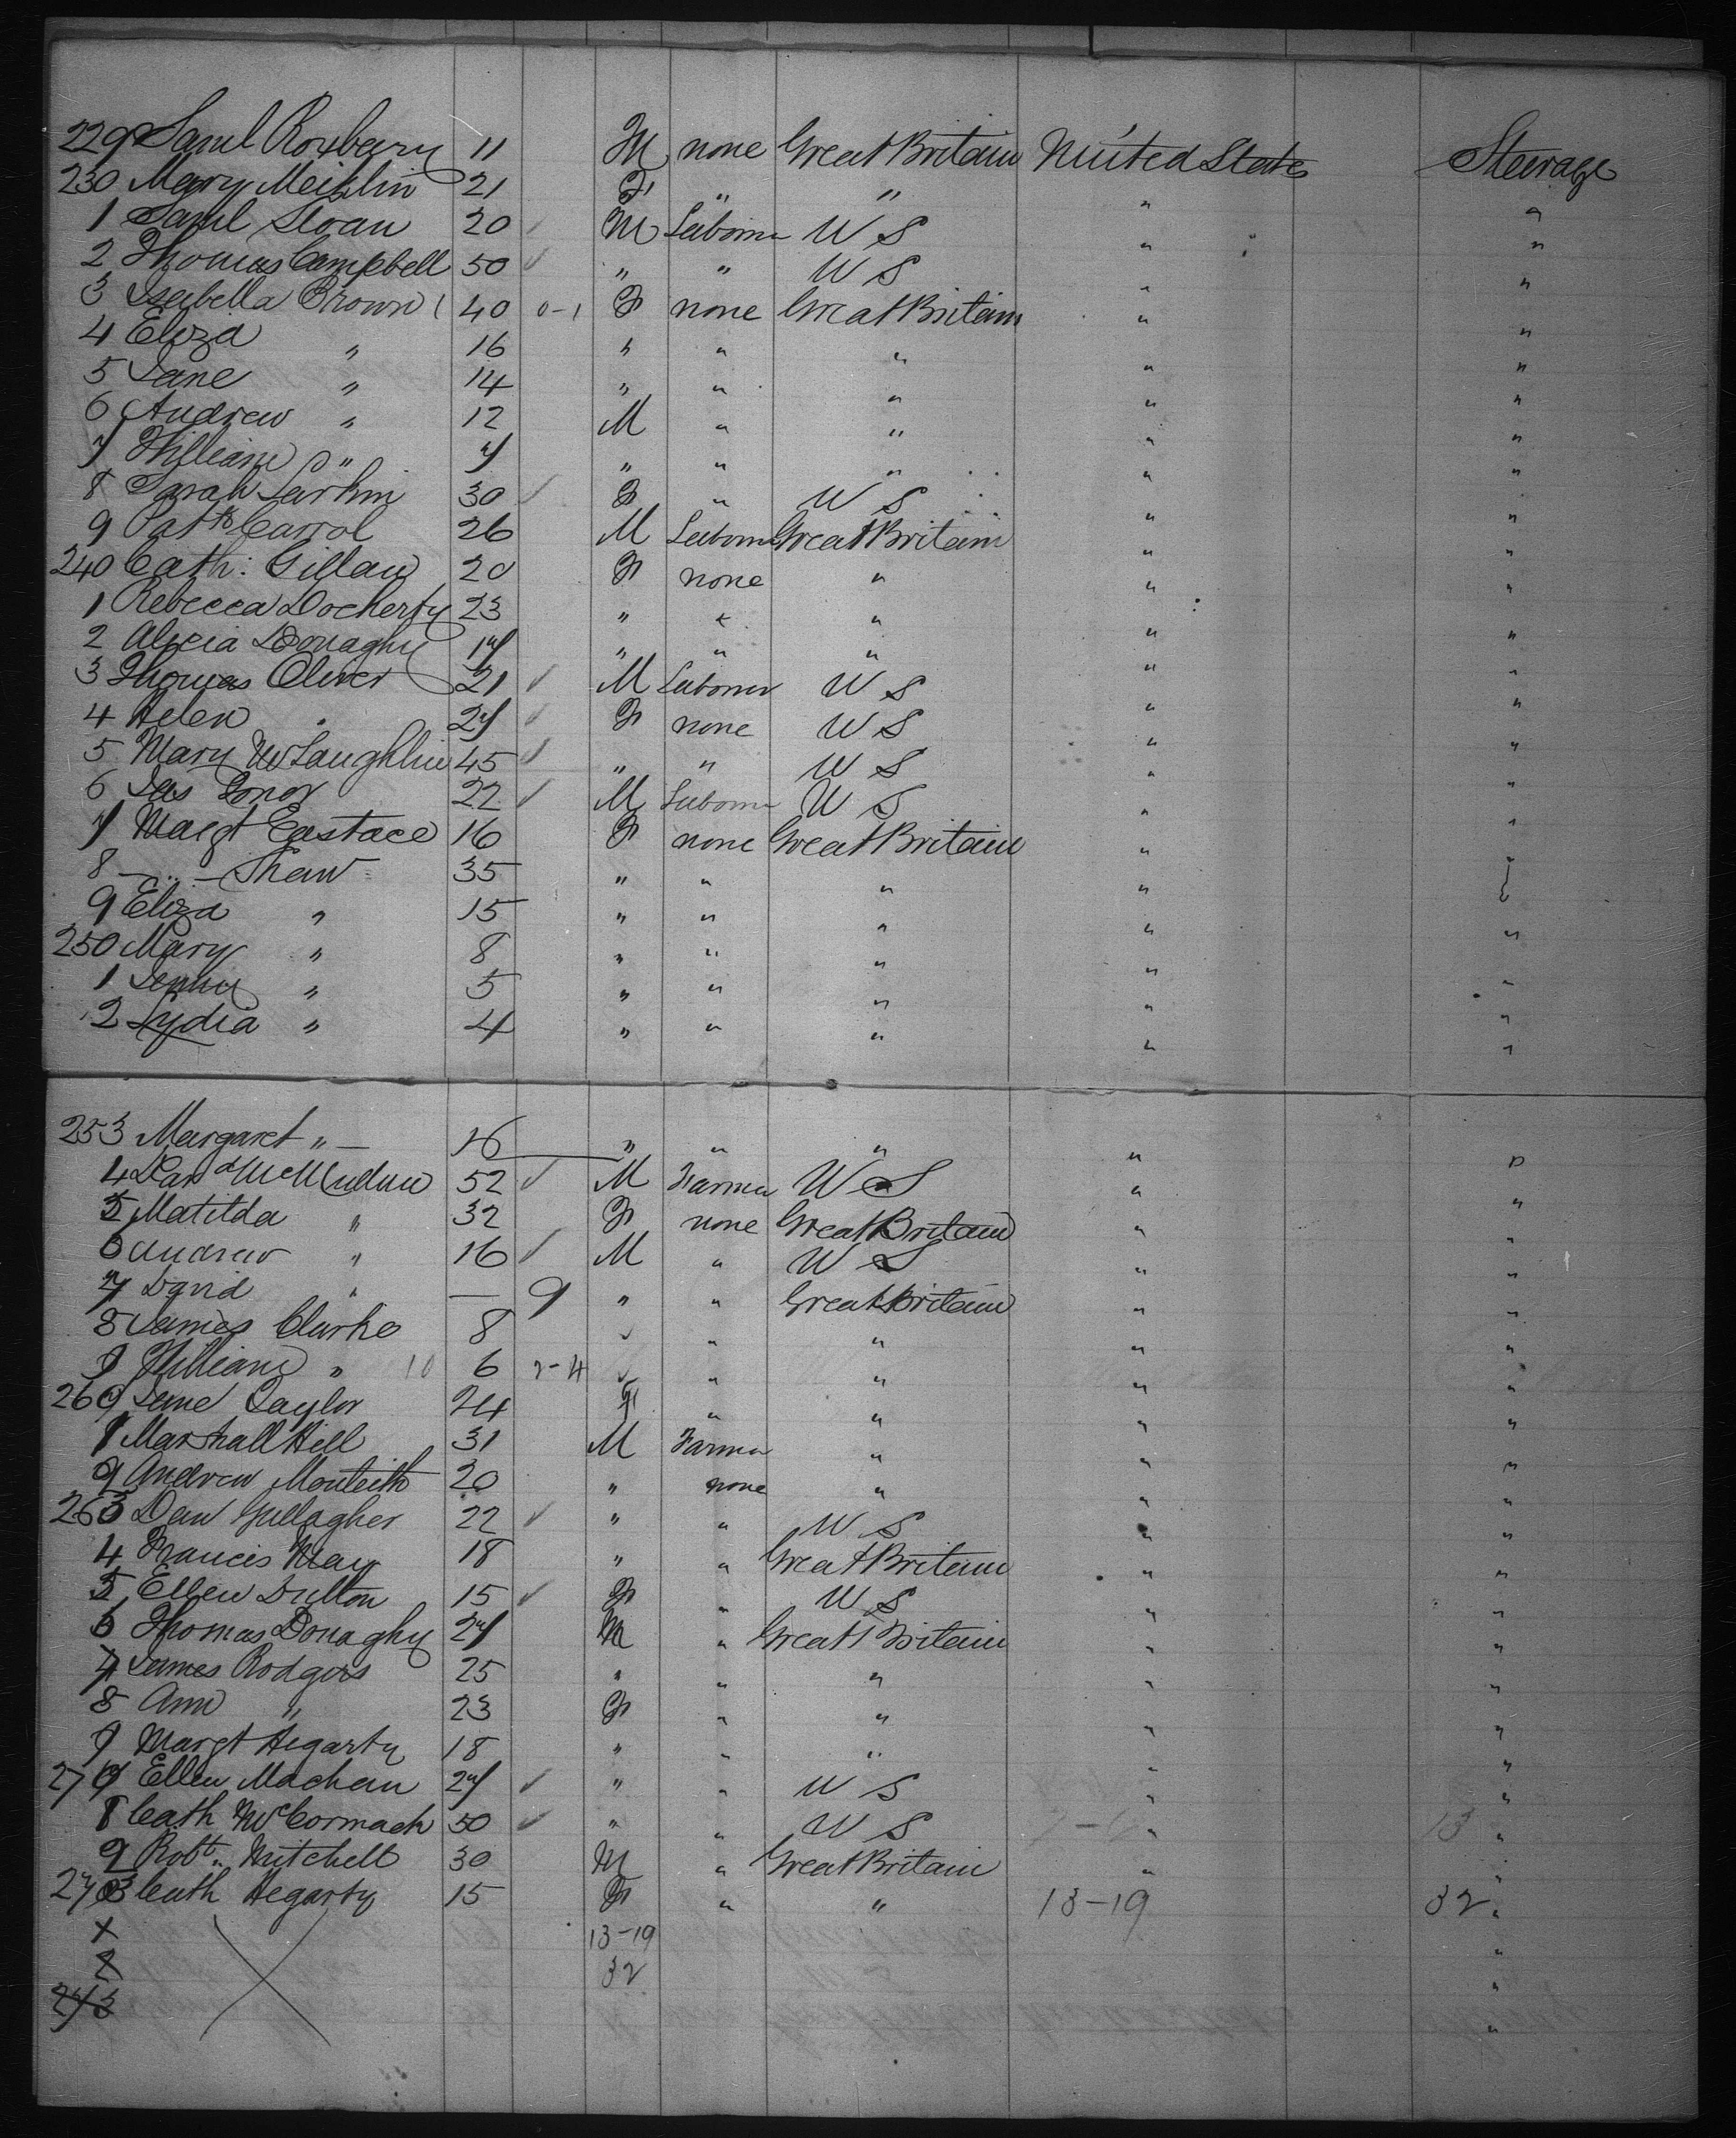 229 Saml Roxbery 11 M none Great Britain United States Steerage
230 Mary Meiklin 21 F " " " "
1 Saml Sloan 20 ✓ M Laborer U S " "
2 Thomas Campbell 50 ✓ " " U S " "
3 Isabella Brown 40 0-1 F none Great Britain " "
4 Eliza " 16 " " " " "
5 Jane " 14 " " " " "
6 Andrew " 12 M " " " "
7 William " 7 " " " " "
8 Sarah Larkin 30 ✓ F " U S " "
9 Patk Carrol 26 M Laborer Great Britain " "
240 Cath: Gillan 20 F none " " "
1 Rebecca Docherty 23 " " " " "
2 Alicia Donaghy 17 " " " " "
3 Thomas Oliver 21 ✓ M Laborer U S " "
4 Helen " 27 ✓ F none U S " "
5 Mary McLaughlin 45 ✓ " " U S " "
6 Jas Conor 22 ✓ M Laborer U S " "
7 Margt Eustace 16 F none Great Britain " "
8 — " — Shaw 35 " " " " "
9 Eliza " 15 " " " " "
250 Mary " 8 " " " " "
1 Jenny " 5 " " " " "
2 Lydia " 4 " " " " "
253 Margaret " — 16 " " " " "
4 52 ✓ M Farmer U S " "
5 Matilda " 32 F none Great Britain " "
6 Andrew " 16 ✓ M " U S " "
7 David " — 9 " " Great Britain " "
8 James Clarke 8 ✓ " " " "
9 William " 10 6 2-4 ✓ " " " "
260 Jane Taylor 24 F " " " "
1 Marshall Hill 31 M Farmer " " "
2 Andrew Monteith 20 " none " " "
263 Dan Gallagher 22 ✓ " " U S " "
4 Francis May 18 " " Great Britain " "
5 Ellen Dutton 15 ✓ F " U S " "
6 Thomas Donaghy 27 M " Great Britain " "
7 James Rodgers 25 " " " " "
8 Ann " 23 F " " " "
9 Margt Hegarty 18 " " " " "
270 Ellen Machan 27 ✓ " " U S " "
1 Cath McCormack 50 ✓ " " U S " 13 "
2 Robt. Mitchell 30 M " Great Britain " "
273 Cath Hegarty 15 F " " 13-19 32 "
X 13-19 "
32 "
273 "